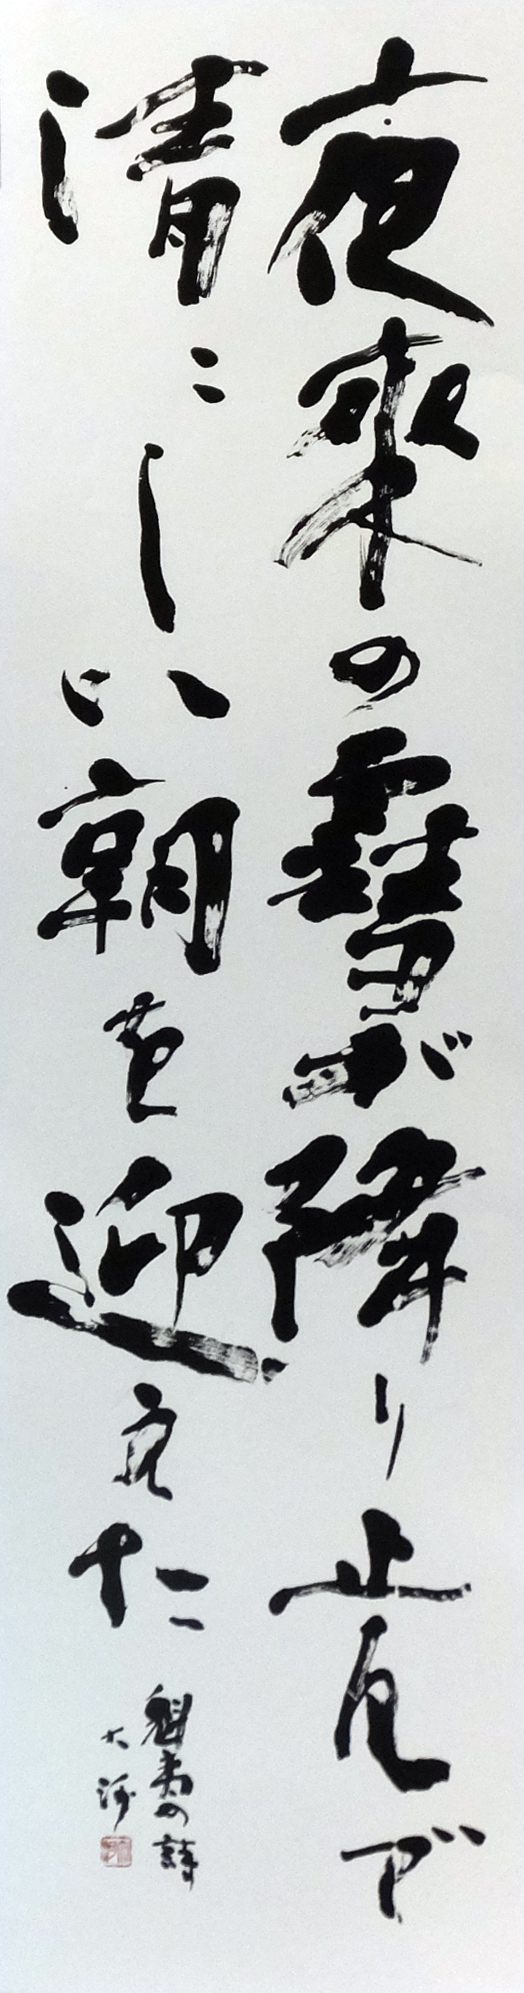 夜來の雪が降り止んで
清々しい朝を迎えた
魁夷の詩
大